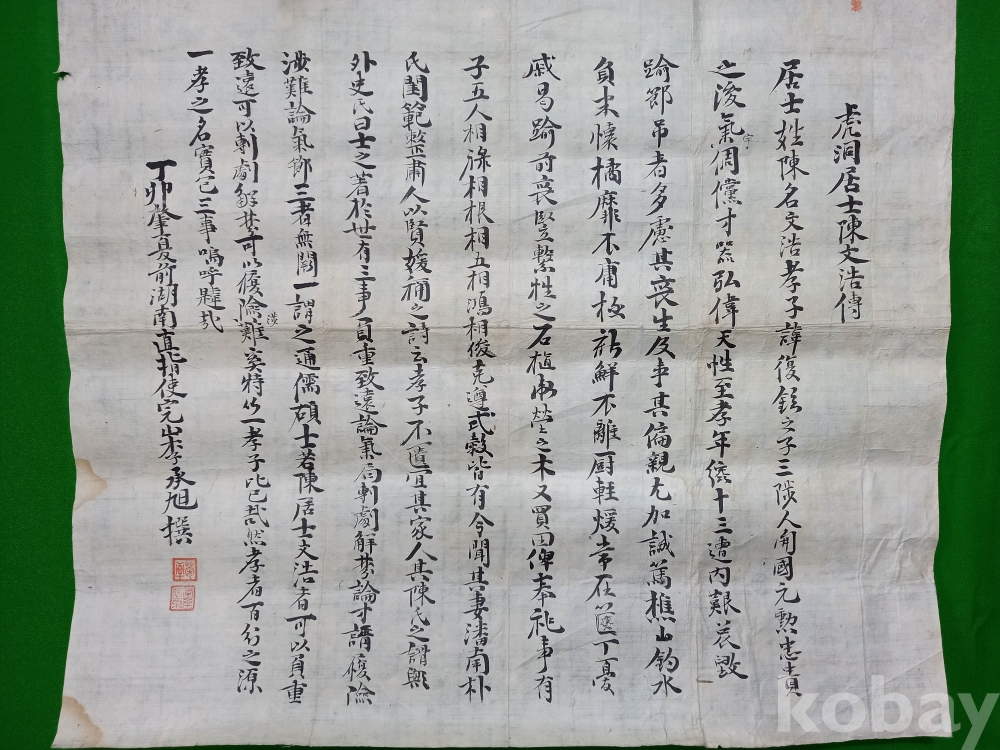 虎洞居士陳文浩傳
居士姓陳名文浩孝子諱復鉉之子三陟人開國元勲忠貴
之後氣倜儻才器弘偉天性至孝年纔十三遭內艱哀毀
踰節吊者多慮其喪生及事其偏親尤加誠篤樵山釣水
負米懷橘靡不庸極 新鮮不離厨輕煖常在篋丁憂
戚易踰前喪竪繫牲之石植 塋之木又買田俾奉祀事有
子五人相祿相根相五相鴻相俊克遵式穀皆有令聞其妻潘南朴
氏閨範整肅人以賢媛稱之詩云孝子不匱宜其家人其陳氏之謂歟
外史氏曰士之著於世有三事負重致遠論氣局剸劇解棼論才謂履險
涉難論氣節三者無闕一謂之通儒碩士若陳居士文浩者可以負重
致遠可以剸劇解棼可以履險涉難奚特以一孝子比已哉然孝者百行之源
一孝之名實包三事嗚呼韙哉
丁卯肇夏前湖南直指使完山李承旭撰
kobay